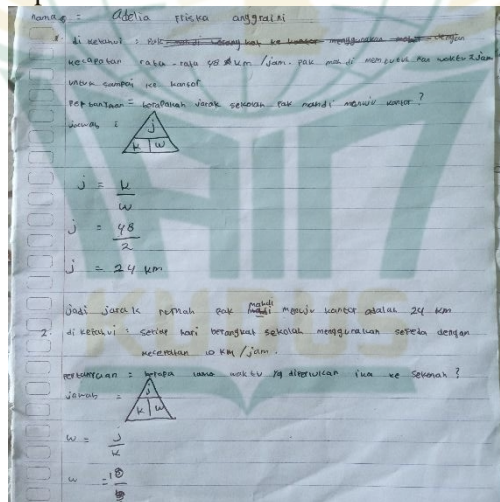 nama : Adelia Friska anggraini
1. di ketahui : Pak mahdi berangkat ke kantor menggunakan dengan
kecepatan rata-rata 48 km/jam. pak mahdi membutuhkan waktu 2 jam
untuk sampai ke kantor
pertanyaan = berapakah jarak sekolah pak mahdi menuju kantor?
jawab :
j
k w
j = k
w
j = 48
2
j = 24 km
jadi jarak rumah pak mahdi menuju kantor adalah 24 km
2. di ketahui : setiap hari berangkat sekolah menggunakan sepeda dengan
kecepatan 10 km/jam.
pertanyaan = berapa lama waktu yg diperlukan ika ke sekolah?
jawab =
j
k w
w = j
k
w =
KUDUS